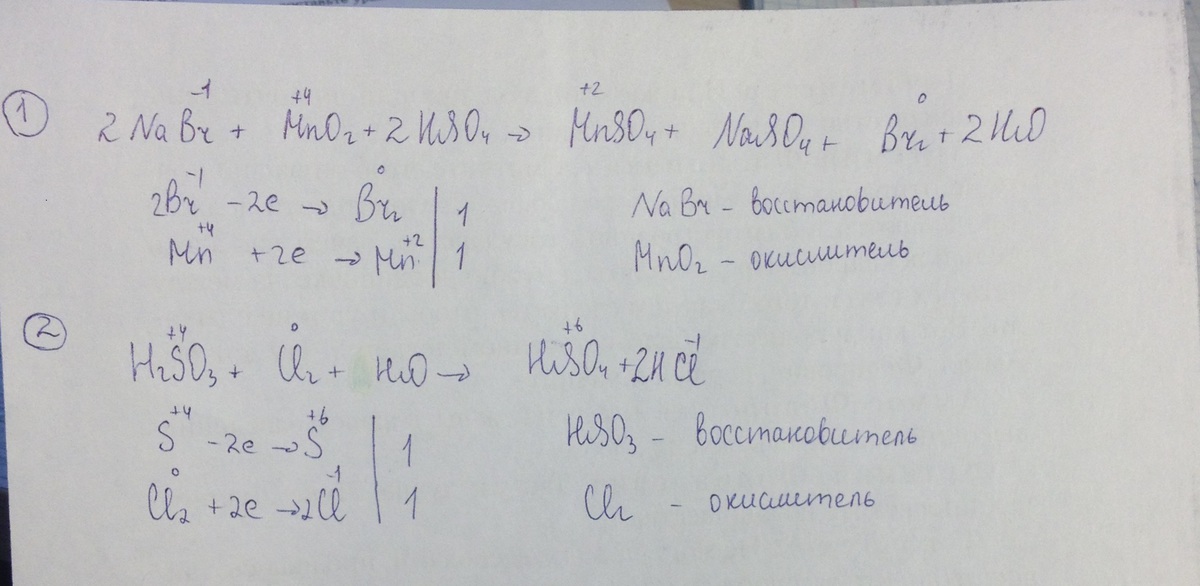 ① 2NaBr⁻¹ + Mn⁺⁴O₂ + 2H₂SO₄ → Mn⁺²SO₄ + Na₂SO₄ + Br₂⁰ + 2H₂O
2Br⁻¹ - 2e → Br₂⁰ | 1 NaBr - восстановитель
Mn⁺⁴ + 2e → Mn⁺² | 1 MnO₂ - окислитель
② H₂S⁺⁴O₃ + Cl₂⁰ + H₂O → H₂S⁺⁶O₄ + 2HCl⁻¹
S⁺⁴ - 2e → S⁺⁶ | 1 H₂SO₃ - восстановитель
Cl₂⁰ + 2e → 2Cl⁻¹ | 1 Cl₂ - окислитель